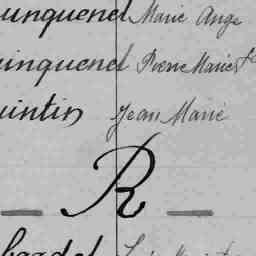 unquenel Marie Ange
inquenel Pierre Marie
uintin Jean Marie
— R —